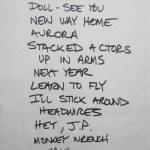 DOLL - SEE YOU
NEW WAY HOME
AURORA
STACKED ACTORS
UP IN ARMS
NEXT YEAR
LEARN TO FLY
I'LL STICK AROUND
HEADWIRES
HEY, J.P.
MONKEY WRENCH